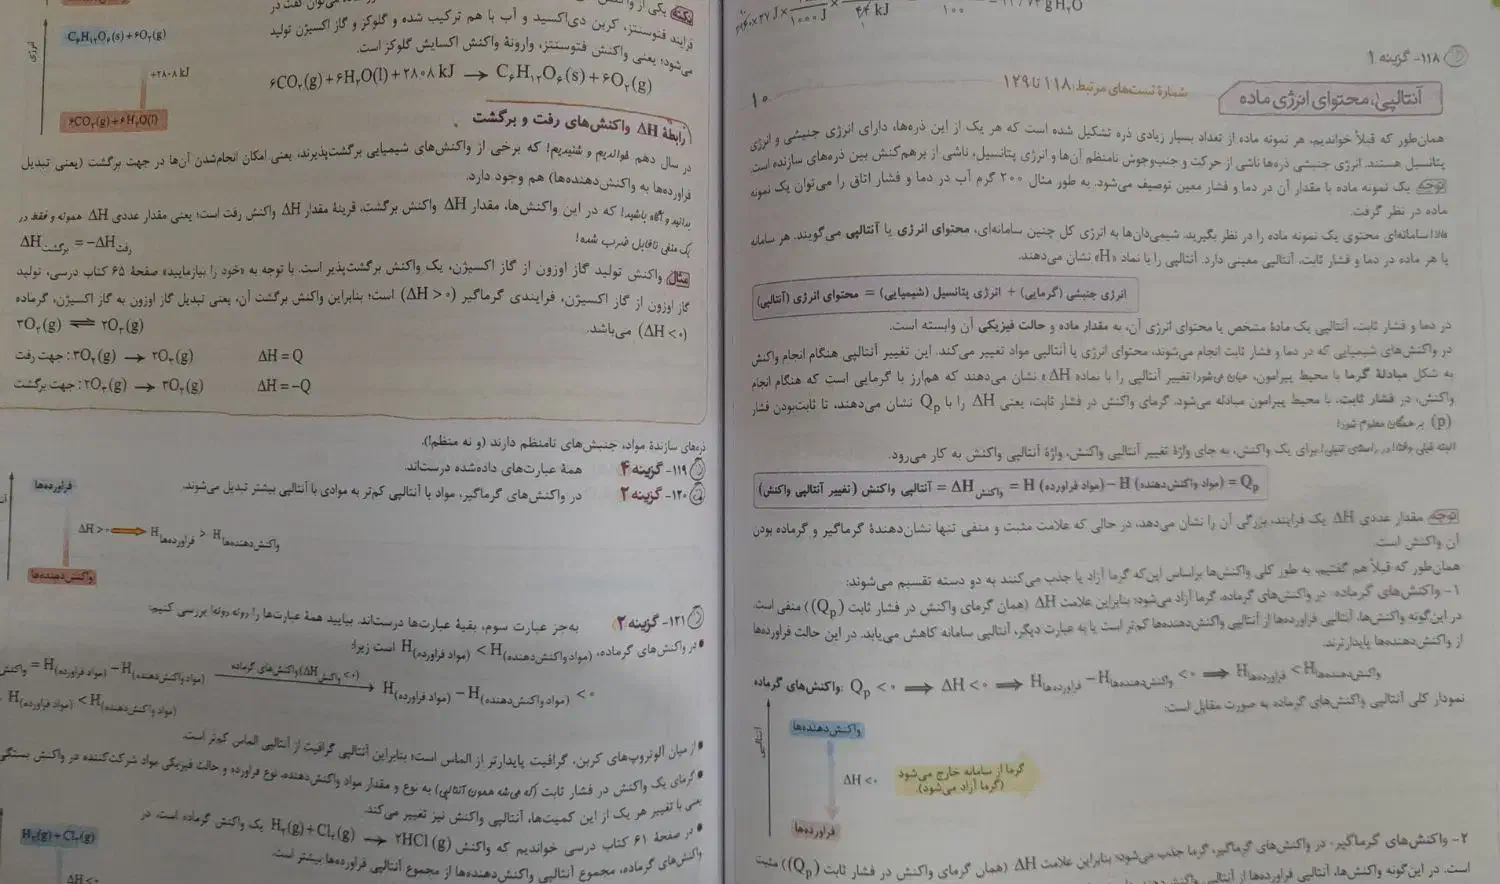 ۱۱۸- گزینه ۱
آنتالپی، محتوای انرژی ماده
شمارهٔ تست‌های مرتبط: ۱۱۸ تا ۱۲۹
۱۰
همان‌طور که قبلاً خواندیم، هر نمونه ماده از تعداد بسیار زیادی ذره تشکیل شده است که هر یک از این ذره‌ها، دارای انرژی جنبشی و انرژی
پتانسیل هستند. انرژی جنبشی ذره‌ها ناشی از حرکت و جنب‌وجوش نامنظم آن‌ها و انرژی پتانسیل، ناشی از برهم‌کنش بین ذره‌های سازنده است.
توجه یک نمونه ماده با مقدار آن در دما و فشار معین توصیف می‌شود. به طور مثال ۲۰۰ گرم آب در دما و فشار اتاق را می‌توان یک نمونه
ماده در نظر گرفت.
حالا سامانه‌ای محتوی یک نمونه ماده را در نظر بگیرید. شیمی‌دان‌ها به انرژی کل چنین سامانه‌ای، محتوای انرژی یا آنتالپی می‌گویند. هر سامانه
یا هر ماده در دما و فشار ثابت، آنتالپی معینی دارد. آنتالپی را با نماد «H» نشان می‌دهند.
انرژی جنبشی (گرمایی) + انرژی پتانسیل (شیمیایی) = محتوای انرژی (آنتالپی)
در دما و فشار ثابت، آنتالپی یک مادهٔ مشخص یا محتوای انرژی آن، به مقدار ماده و حالت فیزیکی آن وابسته است.
در واکنش‌های شیمیایی که در دما و فشار ثابت انجام می‌شوند، محتوای انرژی یا آنتالپی مواد تغییر می‌کند. این تغییر آنتالپی هنگام انجام واکنش
به شکل مبادلهٔ گرما با محیط پیرامون، عیان می‌شود! تغییر آنتالپی را با نماد «ΔH» نشان می‌دهند که هم‌ارز با گرمایی است که هنگام انجام
واکنش، در فشار ثابت، با محیط پیرامون مبادله می‌شود. گرمای واکنش در فشار ثابت، یعنی ΔH را با Qp نشان می‌دهند، تا ثابت‌بودن فشار
(p) بر همگان معلوم شود!
البته خیلی وقتا برای یک واکنش، به جای واژهٔ تغییر آنتالپی واکنش، واژهٔ آنتالپی واکنش به کار می‌رود.
Qp = H (مواد واکنش‌دهنده) − H (مواد فراورده) = ΔH واکنش = آنتالپی واکنش (تغییر آنتالپی واکنش)
توجه مقدار عددی ΔH یک فرایند، بزرگی آن را نشان می‌دهد، در حالی که علامت مثبت و منفی تنها نشان‌دهندهٔ گرماگیر و گرماده بودن
آن واکنش است.
همان‌طور که قبلاً هم گفتیم، به طور کلی واکنش‌ها براساس این‌که گرما آزاد یا جذب می‌کنند به دو دسته تقسیم می‌شوند:
۱- واکنش‌های گرماده: در واکنش‌های گرماده، گرما آزاد می‌شود؛ بنابراین علامت ΔH (همان گرمای واکنش در فشار ثابت (Qp)) منفی است.
در این‌گونه واکنش‌ها، آنتالپی فراورده‌ها از آنتالپی واکنش‌دهنده‌ها کم‌تر است یا به عبارت دیگر، آنتالپی سامانه کاهش می‌یابد. در این حالت فراورده‌ها
از واکنش‌دهنده‌ها پایدارترند.
واکنش‌های گرماده: Qp < ۰ ⟹ ΔH < ۰ ⟹ H فراورده‌ها − H واکنش‌دهنده‌ها < ۰ ⟹ H فراورده‌ها < H واکنش‌دهنده‌ها
نمودار کلی آنتالپی واکنش‌های گرماده به صورت مقابل است:
آنتالپی
واکنش‌دهنده‌ها
ΔH < ۰
گرما از سامانه خارج می‌شود
(گرما آزاد می‌شود).
فراورده‌ها
۲- واکنش‌های گرماگیر: در واکنش‌های گرماگیر، گرما جذب می‌شود؛ بنابراین علامت ΔH (همان گرمای واکنش در فشار ثابت (Qp)) مثبت
است. در این‌گونه واکنش‌ها، آنتالپی فراورده‌ها از آنتالپی
نکته یکی از
فرایند فتوسنتز، کربن دی‌اکسید و آب با هم ترکیب شده و گلوکز و گاز اکسیژن تولید
می‌شود؛ یعنی واکنش فتوسنتز، وارونهٔ واکنش اکسایش گلوکز است.
۶CO₂(g) + ۶H₂O(l) + ۲۸۰۸ kJ ⟶ C₆H₁₂O₆(s) + ۶O₂(g)
انرژی
C₆H₁₂O₆(s) + ۶O₂(g)
+۲۸۰۸ kJ
۶CO₂(g) + ۶H₂O(l)
رابطهٔ ΔH واکنش‌های رفت و برگشت
در سال دهم خواندیم و شنیدیم! که برخی از واکنش‌های شیمیایی برگشت‌پذیرند، یعنی امکان انجام‌شدن آن‌ها در جهت برگشت (یعنی تبدیل
فراورده‌ها به واکنش‌دهنده‌ها) هم وجود دارد.
بدانید و آگاه باشید! که در این واکنش‌ها، مقدار ΔH واکنش برگشت، قرینهٔ مقدار ΔH واکنش رفت است؛ یعنی مقدار عددی ΔH همونه و فقط در
یک منفی ناقابل ضرب شده!
ΔH برگشت = −ΔH رفت
مثال واکنش تولید گاز اوزون از گاز اکسیژن، یک واکنش برگشت‌پذیر است. با توجه به «خود را بیازمایید» صفحهٔ ۶۵ کتاب درسی، تولید
گاز اوزون از گاز اکسیژن، فرایندی گرماگیر (ΔH > ۰) است؛ بنابراین واکنش برگشت آن، یعنی تبدیل گاز اوزون به گاز اکسیژن، گرماده
(ΔH < ۰) می‌باشد.
۳O₂(g) ⇌ ۲O₃(g)
جهت رفت: ۳O₂(g) ⟶ ۲O₃(g) ΔH = Q
جهت برگشت: ۲O₃(g) ⟶ ۳O₂(g) ΔH = −Q
ذره‌های سازندهٔ مواد، جنبش‌های نامنظم دارند (و نه منظم!).
۱۱۹- گزینه ۴ همهٔ عبارت‌های داده‌شده درست‌اند.
۱۲۰- گزینه ۲ در واکنش‌های گرماگیر، مواد با آنتالپی کم‌تر به موادی با آنتالپی بیشتر تبدیل می‌شوند.
فراورده‌ها
ΔH > ۰ ⟹ H فراورده‌ها > H واکنش‌دهنده‌ها
واکنش‌دهنده‌ها
۱۲۱- گزینه ۲ به‌جز عبارت سوم، بقیهٔ عبارت‌ها درست‌اند. بیایید همهٔ عبارت‌ها را دونه دونه! بررسی کنیم:
• در واکنش‌های گرماده، H (مواد فراورده) < H (مواد واکنش‌دهنده) است زیرا:
واکنش = H (مواد فراورده) − H (مواد واکنش‌دهنده) واکنش‌های گرماده (ΔH واکنش < ۰) ⟶ H (مواد فراورده) − H (مواد واکنش‌دهنده) < ۰
H (مواد فراورده) < H (مواد واکنش‌دهنده)
• از میان آلوتروپ‌های کربن، گرافیت پایدارتر از الماس است؛ بنابراین آنتالپی گرافیت از آنتالپی الماس کم‌تر است.
• گرمای یک واکنش در فشار ثابت (که می‌شه همون آنتالپی) به نوع و مقدار مواد واکنش‌دهنده، نوع فراورده و حالت فیزیکی مواد شرکت‌کننده در واکنش بستگی
یعنی با تغییر هر یک از این کمیت‌ها، آنتالپی واکنش نیز تغییر می‌کند.
• در صفحهٔ ۶۱ کتاب درسی خواندیم که واکنش H₂(g) + Cl₂(g) ⟶ ۲HCl(g) یک واکنش گرماده است. در
واکنش‌های گرماده، مجموع آنتالپی واکنش‌دهنده‌ها از مجموع آنتالپی فراورده‌ها بیشتر است.
H₂(g) + Cl₂(g)
ΔH < ۰